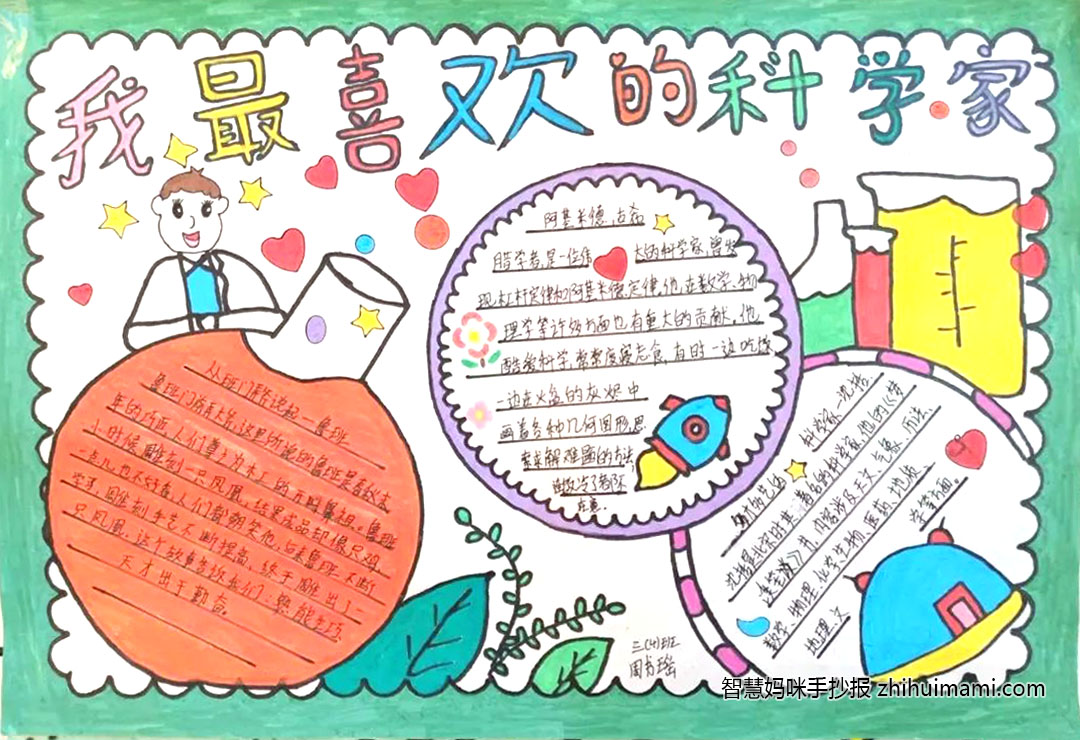 我最喜欢的科学家
从班门弄斧说起—鲁班
鲁班门前弄大斧,这里所说的鲁班是春秋末
年的巧匠,人们尊之为木工的开山鼻祖。鲁班
小时候雕刻一只凤凰,结果成品却像只鸡,
一点儿也不好看,人们都朝笑他,后来鲁班不断
学习,雕刻手艺不断提高,终于雕出了一
只凤凰。这个故事告诉我们:熟能生巧
天才出于勤奋。
阿基米德,古希
腊学者,是一位伟大的科学家,曾发
现杠杆定律和阿基米德定律,他在数学、物
理学等许多方面也有重大的贡献。他
酷爱科学,常常废寝忘食,有时一边吃饭
一边在火盆的灰烬中
画着各种几何图形,思
索求解难题的方法,
在意。
科学家—沈括
沈括是北宋时期著名的科学家,他的《梦
溪笔谈》一书,内容涉及天文、气象、历法、
数学、物理、化学、生物、医药、地质
地理、文学等方面。
三(4)班
周书瑶
智慧妈咪手抄报 zhihuimami.com